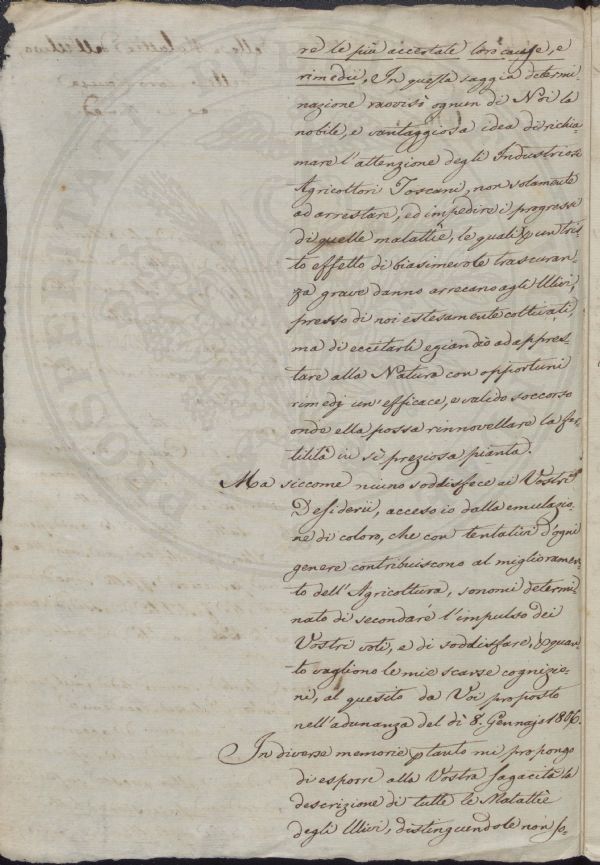 re le più accertate loro cause, e
rimedii, In questa saggia determi-
nazione ravvisò ognun di Noi la
nobile, e vantaggiosa idea di richia-
mare l'attenzione degli Industriosi
Agricoltori Toscani, non solamente
ad arrestare, ed impedire i progressi
di quelle malattìe, le quali p un tris-
to effetto di biasimevole trascuran-
za grave danno arrecano agli Ulivi,
presso di noi estesamente coltivati,
ma di eccitarli eziandio ad appres-
tare alla Natura con opportuni
rimedj un'efficace, e valido soccorso
onde ella possa rinnovellare la fer-
tilità in sì preziosa pianta.
Ma siccome niuno soddisfece ai Vostri
Desiderii, acceso io dalla emulazio-
ne di coloro, che con tentativi d'ogni
genere contribuiscono al miglioramen-
to dell'Agricoltura, sonomi determi-
nato di secondare l'impulso dei
Vostri voti, e di soddisfare, p quan-
to vagliono le mie scarse cognizio-
ni, al quesito da Voi proposto
nell'adunanza del dì 8. Gennajo 1806.
In diverse memorie ptanto mi propongo
di esporre alla Vostra sagacità la
descrizione di tutte le Malattìe
degli Ulivi, distinguendole non so-